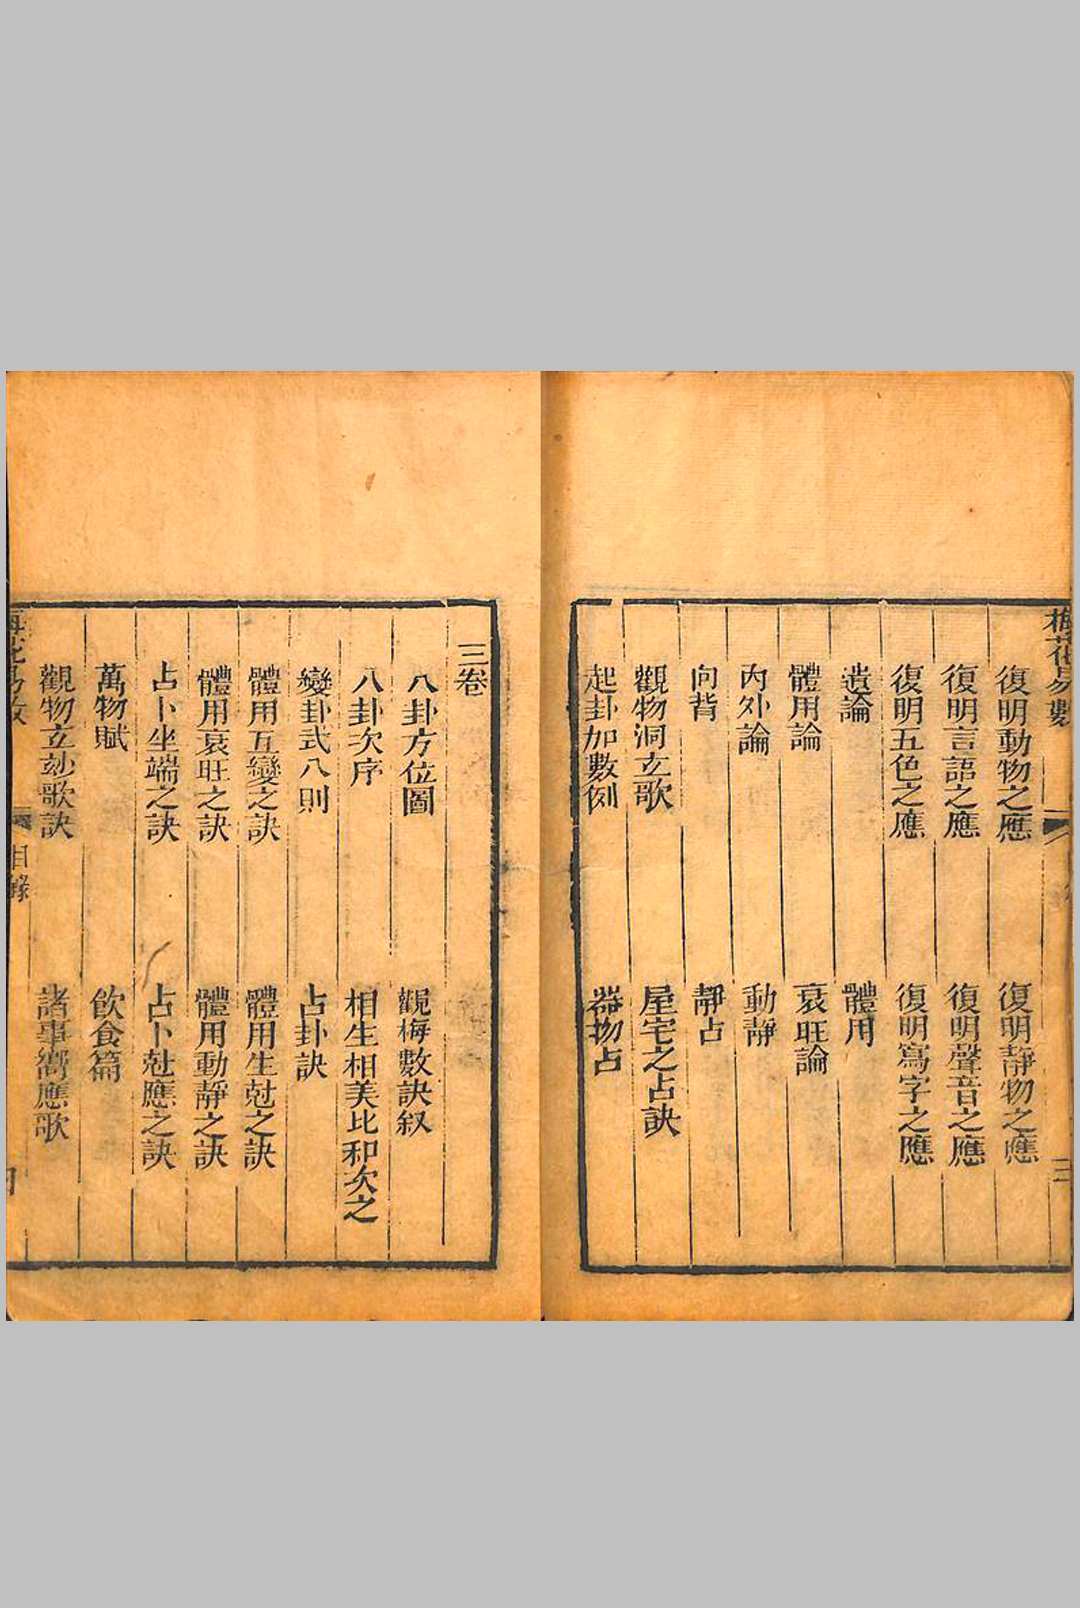 梅花易數
三
復明動物之應　復明靜物之應
復明言語之應　復明聲音之應
復明五色之應　復明寫字之應
遺論　體用
體用論　衰旺論
內外論　動靜
向背　靜占
觀物洞玄歌　屋宅之占訣
起卦加數例　器物占
三卷
八卦方位圖　觀梅數訣叙
八卦次序　相生相美比和次之
變卦式八則　占卦訣
體用互變之訣　體用生尅之訣
體用衰旺之訣　體用動靜之訣
占卜坐端之訣　占卜尅應之訣
萬物賦　飲食篇
觀物玄妙歌訣　諸事響應歌
梅花易數　目錄